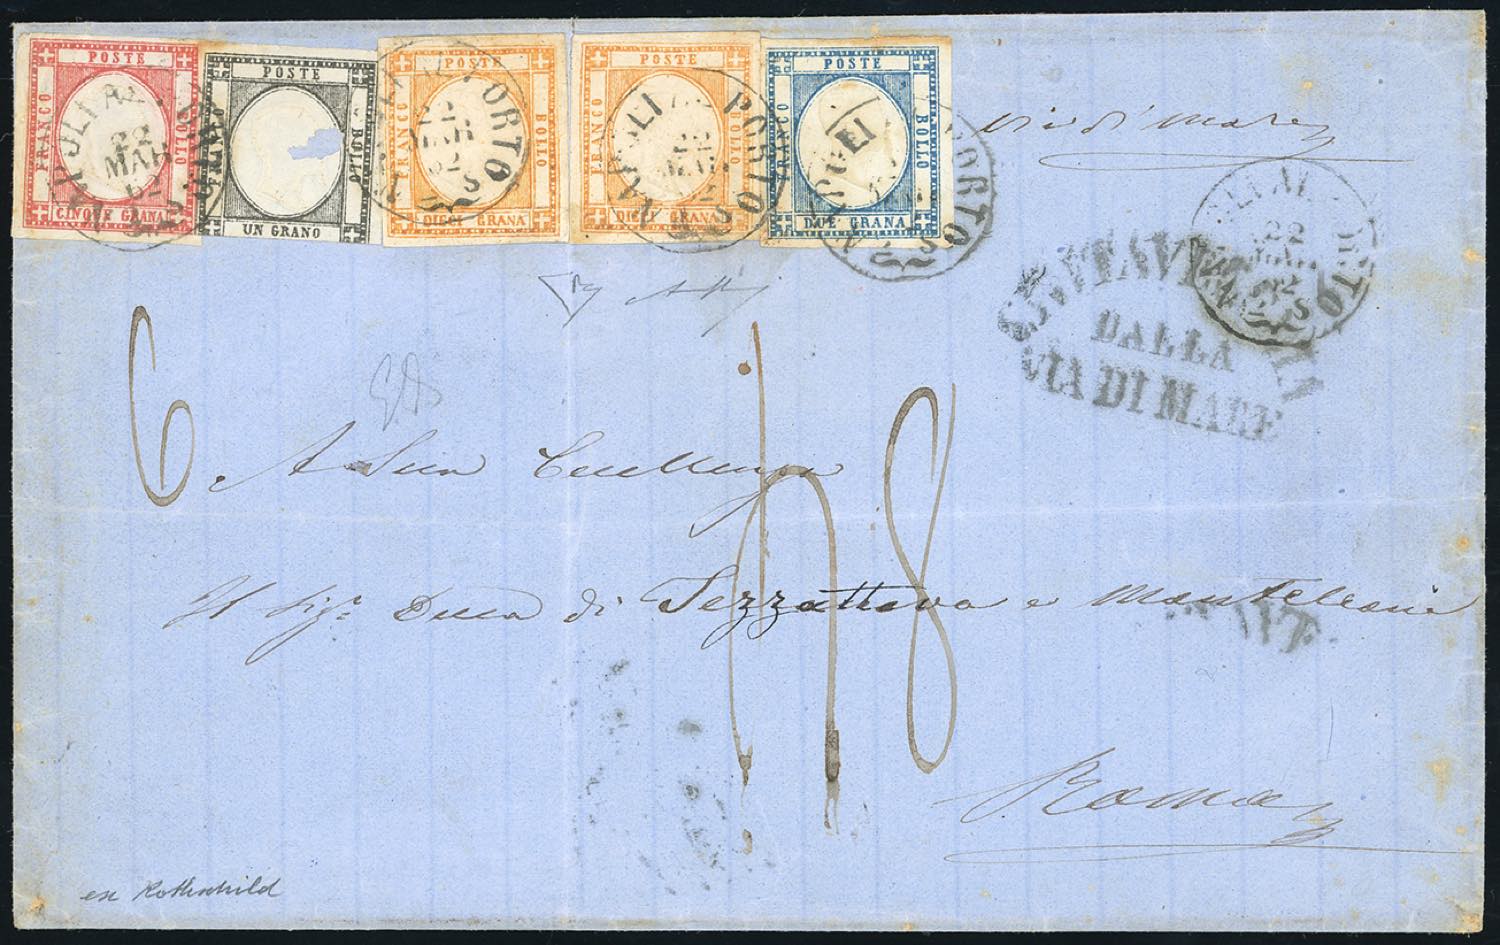 POSTE
FRANCO
BOLLO
CINQUE GRANA
POSTE
BOLLO
UN GRANO
POSTE
FRANCO
BOLLO
DIECI GRANA
POSTE
FRANCO
BOLLO
DIECI GRANA
POSTE
FRANCO
BOLLO
DUE GRANA
NAPOLI AL PORTO
22
MAR
62
NAPOLI AL PORTO
22
MAR
62
NAPOLI PORTO
22
MAR
PORTO
Via di mare
22
62
DALLA
VIA DI MARE
6
A Sua Eccellenza
8
Il Sigr. Duca di Terranova e Monteleone
Roma
ex Rothschild